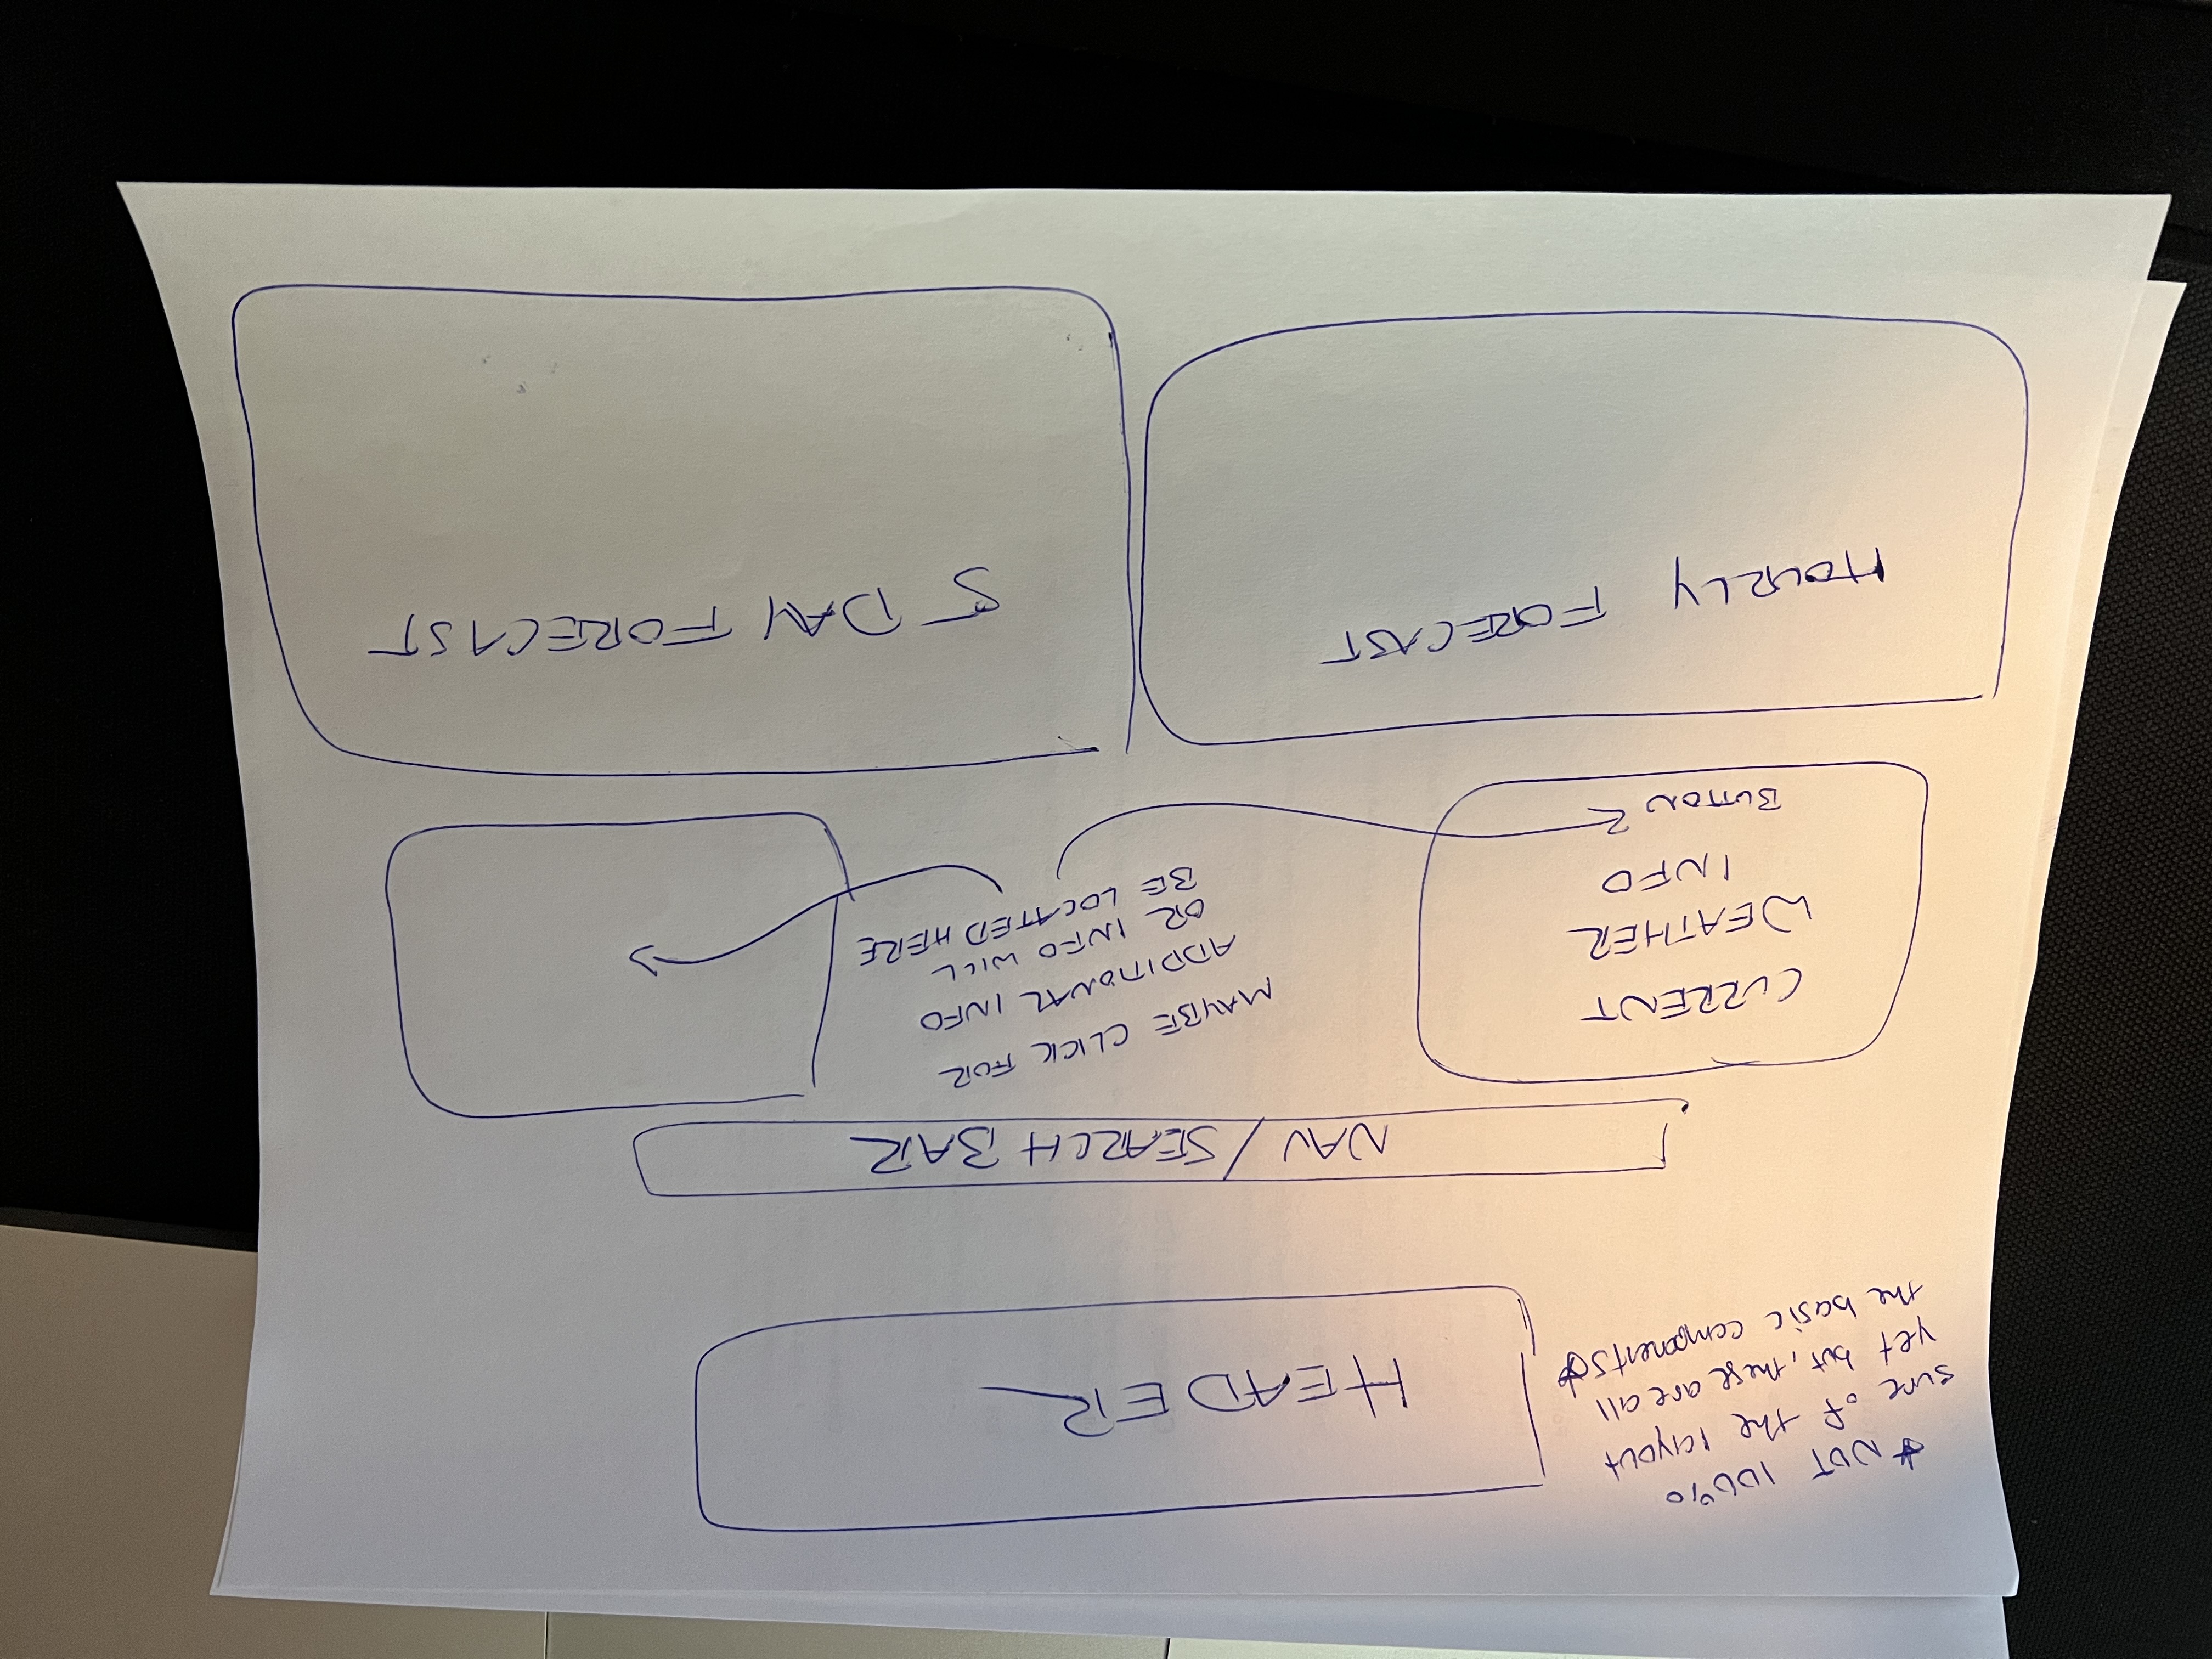 * NOT 100%
sure of the layout
yet but, these are all
the basic components *
HEADER
NAV / SEARCH BAR
CURRENT
WEATHER
INFO
BUTTON
MAYBE CLICK FOR
ADDITIONAL INFO
OR INFO WILL
BE LOCATED HERE
HOURLY FORECAST
5 DAY FORECAST